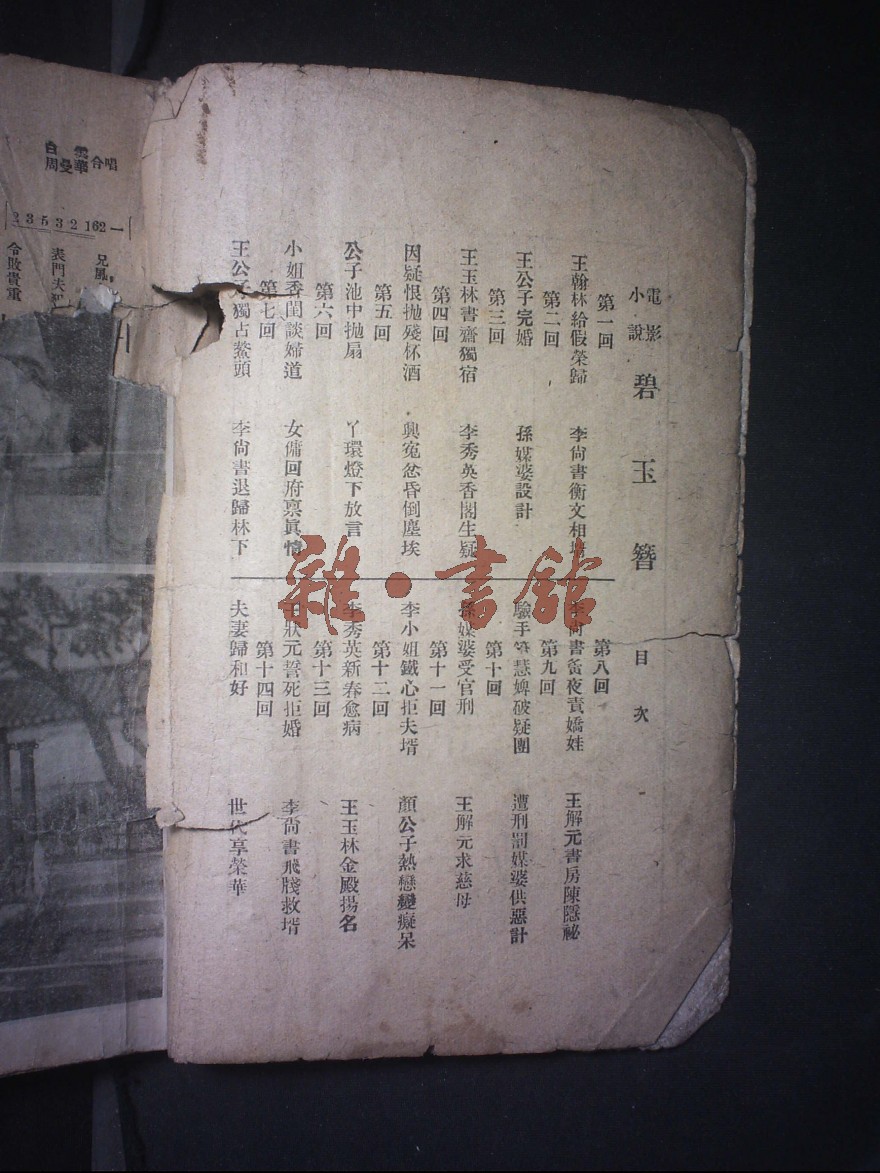 電影小說 碧玉簪 目次
第一回
王翰林給假榮歸 李尚書衡文相壻
第二回
王公子完婚 孫媒婆設計
第三回
王玉林書齋獨宿 李秀英香閣生疑
第四回
因疑恨拋殘杯酒 興寃忿昏倒塵埃
第五回
公子池中拋扇 丫環燈下放言
第六回
小姐香閨談婦道 女傭回府禀眞情
第七回
王公子獨占鰲頭 李尙書退歸林下
第八回
李尙書夤夜責嬌娃 王解元書房陳隱祕
第九回
驗手筆慧婢破疑團 遭刑罰媒婆供惡計
第十回
孫媒婆受官刑 王解元求慈母
第十一回
李小姐鐵心拒夫壻 顏公子熱戀變癡呆
第十二回
李秀英新春愈病 王玉林金殿揚名
第十三回
王狀元誓死拒婚 李尙書飛牋救壻
第十四回
夫妻歸和好 世代享榮華
雜·書館
白雲
周曼華合唱
2 3 5 3 2 1 62 一
兄風
表門夫
令敗貴重